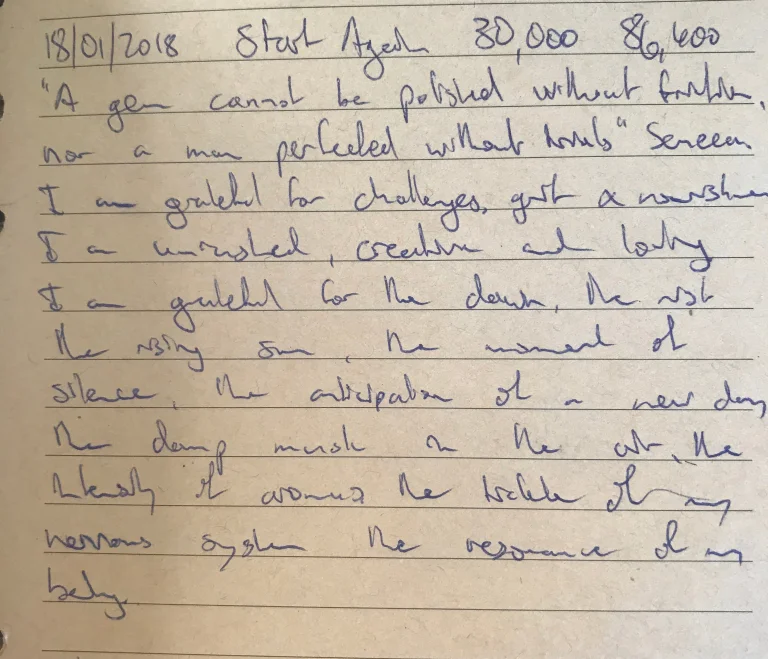 18/01/2018 Start Again 30,000 86,400
"A gem cannot be polished without friction,
nor a man perfected without trials" Seneca
I am grateful for challenges, grit &
I am unrushed, creative and loving
I am grateful for the dawn, the mist
the rising sun, the moment of
silence, the anticipation of a new day
the damp musk in the air, the
intensity of aromas the tickle of my
nervous system the resonance of my
being.